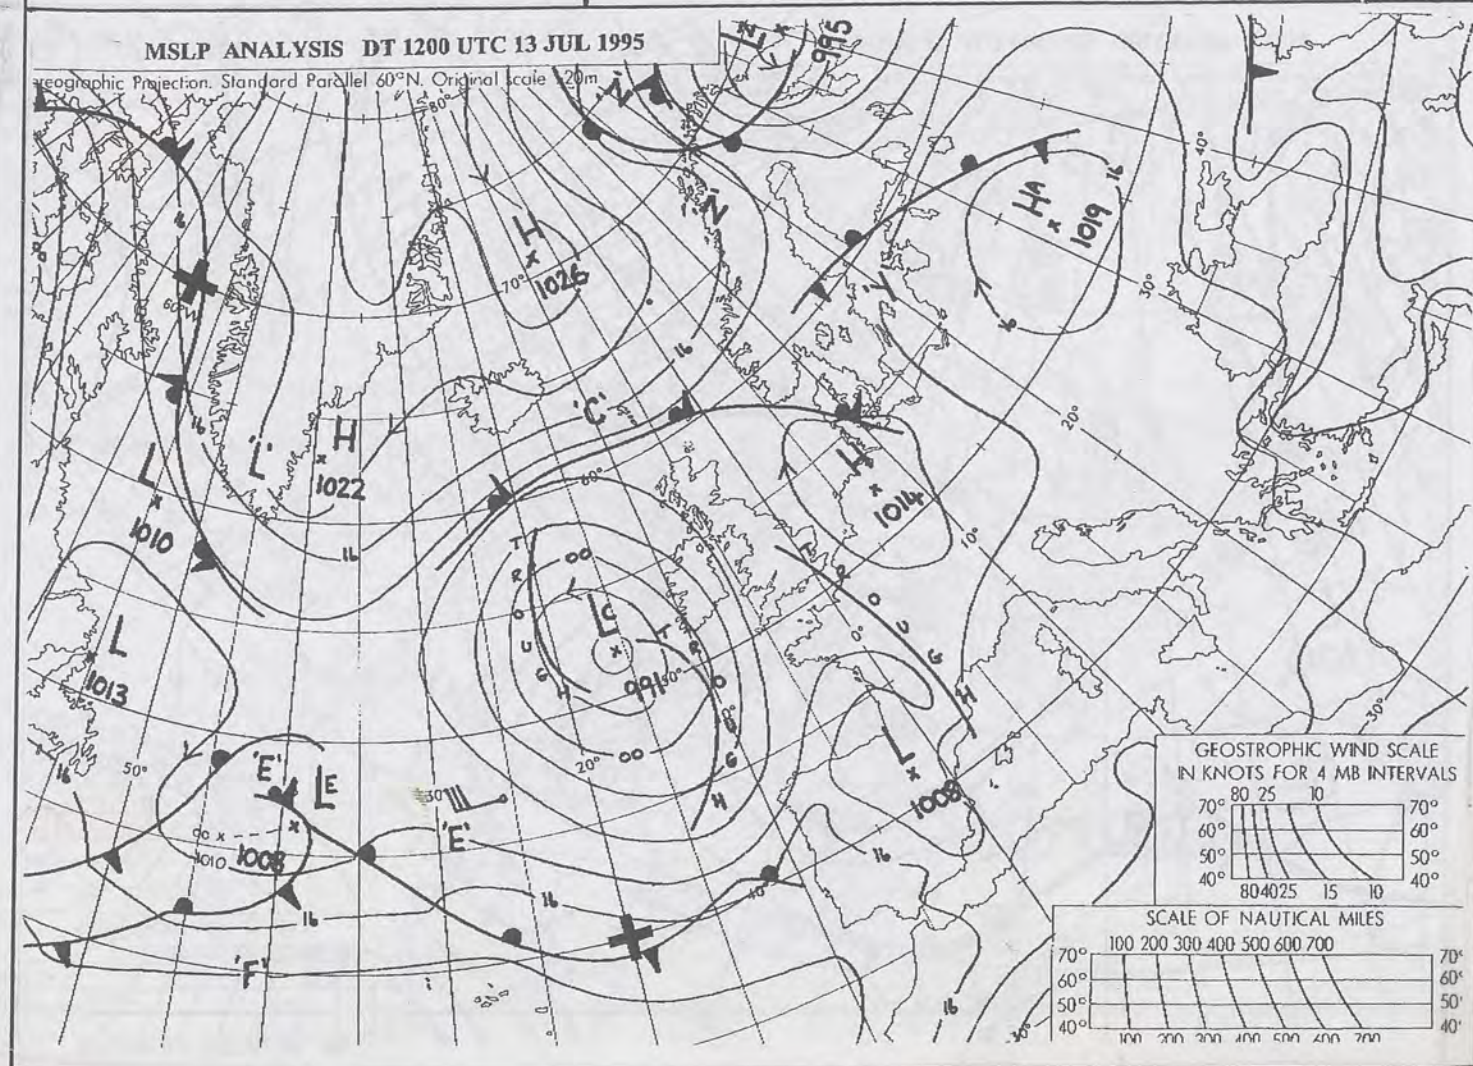 MSLP ANALYSIS DT 1200 UTC 13 JUL 1995
reographic Projection. Standard Parallel 60°N. Original scale 1:20m
995
'Z'
80°
40°
16
HA
1019
'Z'
16
H
1026
70°
'Y'
30°
60°W
16
16
'C'
20°
16
'L'
H
1022
L
1010
60°
H
1014
10°
16
TROUGH
00
TROUGH
LC
991
50°
TROUGH
0°
L
1013
08
00
20°
L
1008
30°
16
50°
'E'
LE
30
'E'
00
1010
1008
16
16
16
40°
'F'
16
30°
GEOSTROPHIC WIND SCALE
IN KNOTS FOR 4 MB INTERVALS
80 25 10
70° 70°
60° 60°
50° 50°
40° 40°
80 40 25 15 10
SCALE OF NAUTICAL MILES
100 200 300 400 500 600 700
70° 70°
60° 60°
50° 50'
40° 40'
100 200 300 400 500 600 700